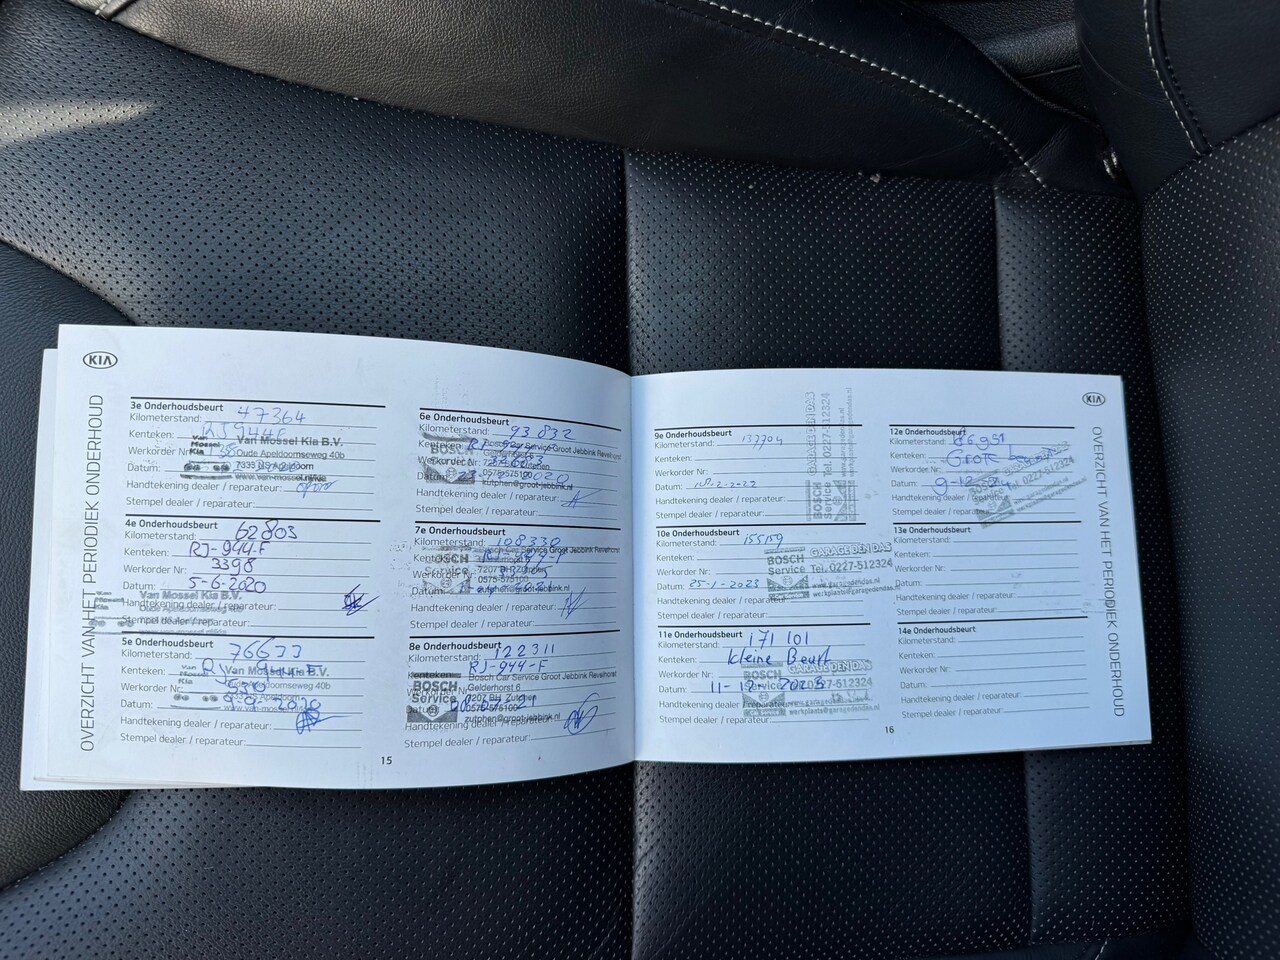 KIA
OVERZICHT VAN HET PERIODIEK ONDERHOUD
3e Onderhoudsbeurt
Kilometerstand: 47264
Kenteken:
Van Mossel Kia
Van Mossel Kia B.V.
Oude Apeldoornseweg 40b
Werkorder Nr:
7333 NS Apeldoorn
Datum:
Handtekening dealer / reparateur:
Stempel dealer / reparateur:
4e Onderhoudsbeurt
Kilometerstand: 62803
Kenteken: RJ-944-F
Werkorder Nr: 3398
Datum: 5-6-2020
Van Mossel Kia B.V.
Handtekening dealer / reparateur:
Stempel dealer / reparateur:
5e Onderhoudsbeurt
Kilometerstand: 76633
Kenteken:
Van Mossel Kia B.V.
Werkorder Nr:
Datum:
Handtekening dealer / reparateur:
Stempel dealer / reparateur:
6e Onderhoudsbeurt
Kilometerstand: 93832
Kenteken:
Bosch Car Service Groot Jebbink Revelhorst
BOSCH
Gelderhorst 6
Werkorder Nr:
Datum:
0575-575100
zutphen@groot-jebbink.nl
Handtekening dealer / reparateur:
Stempel dealer / reparateur:
7e Onderhoudsbeurt
Kilometerstand: 108330
Kenteken:
Service Groot Jebbink Revelhorst
Werkorder Nr:
7207 BH Zutphen
0575-575100
Datum:
zutphen@groot-jebbink.nl
Handtekening dealer / reparateur:
Stempel dealer / reparateur:
8e Onderhoudsbeurt
Kilometerstand: 122311
Kenteken: RJ-944-F
Bosch Car Service Groot Jebbink Revelhorst
BOSCH Service
Gelderhorst 6
7207 BH Zutphen
0575-575100
zutphen@groot-jebbink.nl
Handtekening dealer / reparateur:
Stempel dealer / reparateur:
15
KIA
OVERZICHT VAN HET PERIODIEK ONDERHOUD
9e Onderhoudsbeurt
Kilometerstand: 137704
Kenteken:
Werkorder Nr:
Datum:
Handtekening dealer / reparateur:
Stempel dealer / reparateur:
BOSCH Service
GARAGE DEN DAS
Tel. 0227-512324
10e Onderhoudsbeurt
Kilometerstand: 155159
Kenteken:
Werkorder Nr:
Datum: 25-1-2023
BOSCH Service
GARAGE DEN DAS
Tel. 0227-512324
www.garagedendas.nl
werkplaats@garagedendas.nl
Handtekening dealer / reparateur:
Stempel dealer / reparateur:
11e Onderhoudsbeurt
Kilometerstand: 171101
Kenteken: Kleine Beurt
Werkorder Nr:
BOSCH Service
GARAGE DEN DAS
Datum:
werkplaats@garagedendas.nl
Handtekening dealer / reparateur:
Stempel dealer / reparateur:
12e Onderhoudsbeurt
Kilometerstand:
Kenteken: Grote
Werkorder Nr:
Tel. 0227-512324
Datum:
Handtekening dealer / reparateur:
Stempel dealer / reparateur:
13e Onderhoudsbeurt
Kilometerstand:
Kenteken:
Werkorder Nr:
Datum:
Handtekening dealer / reparateur:
Stempel dealer / reparateur:
14e Onderhoudsbeurt
Kilometerstand:
Kenteken:
Werkorder Nr:
Datum:
Handtekening dealer / reparateur:
Stempel dealer / reparateur:
16